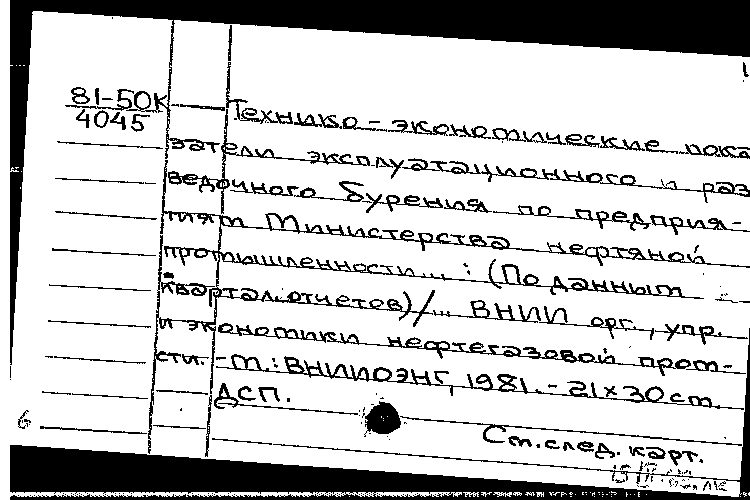 81-50К
4045
Технико-экономические пока
затели эксплуатационного и раз
ведочного бурения по предприя-
тиям Министерства нефтяной
промышленности... : (По данным
квартал. отчетов)/... ВНИИ орг., упр.
и экономики нефтегазовой пром-
сти. -М.: ВНИИОЭНГ, 1981. - 21×30 см.
ДСП.
См. след. карт.
6